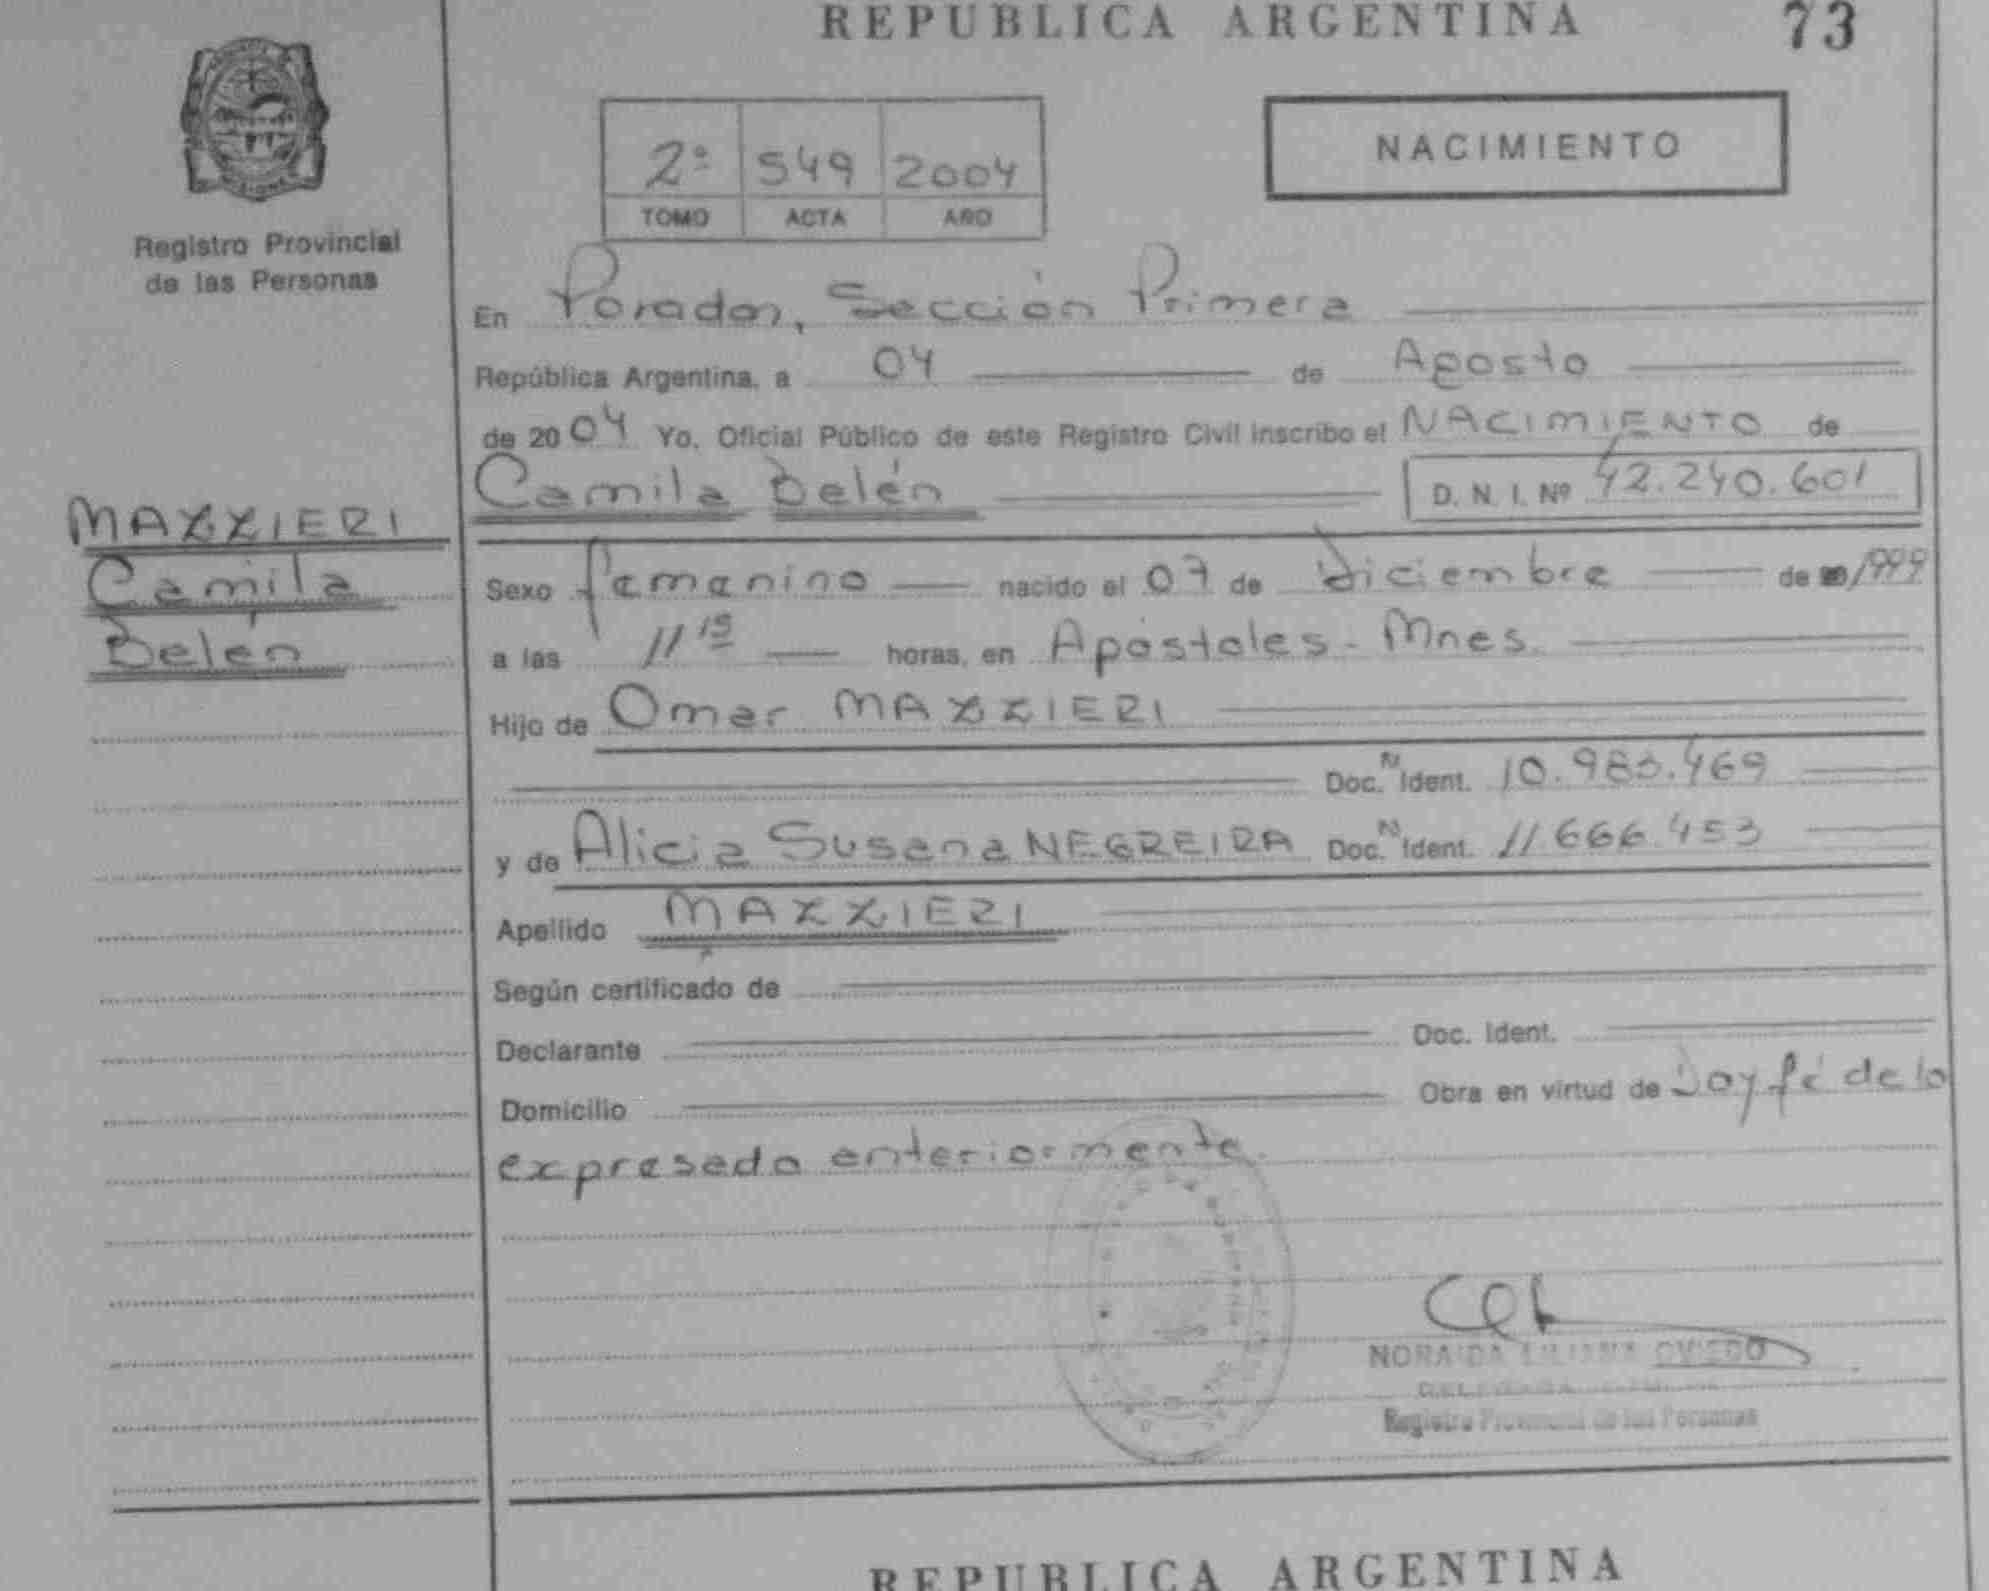 REPUBLICA ARGENTINA 73
Registro Provincial
de las Personas
2º 549 2004
TOMO ACTA AÑO
NACIMIENTO
En Posadas, Sección Primera
República Argentina, a 04 de Agosto
de 2004 Yo, Oficial Público de este Registro Civil inscribo el NACIMIENTO de
Camila Belén D. N. I. Nº 42.240.601
MAZZIERI
Camila
Belén
Sexo femenino nacido el 07 de Diciembre de 1999
a las 11 15 horas, en Apóstoles - Mnes.
Hijo de Omar MAZZIERI
Doc. N Ident. 10.983.469
y de Alicia Susana NEGREIRA Doc. N Ident. 11.666.453
Apellido MAZZIERI
Según certificado de
Declarante Doc. Ident.
Domicilio Obra en virtud de Doy fé de lo
expresado anteriormente.
LILIANA OVIEDO
Registro Provincial de las Personas
REPUBLICA ARGENTINA